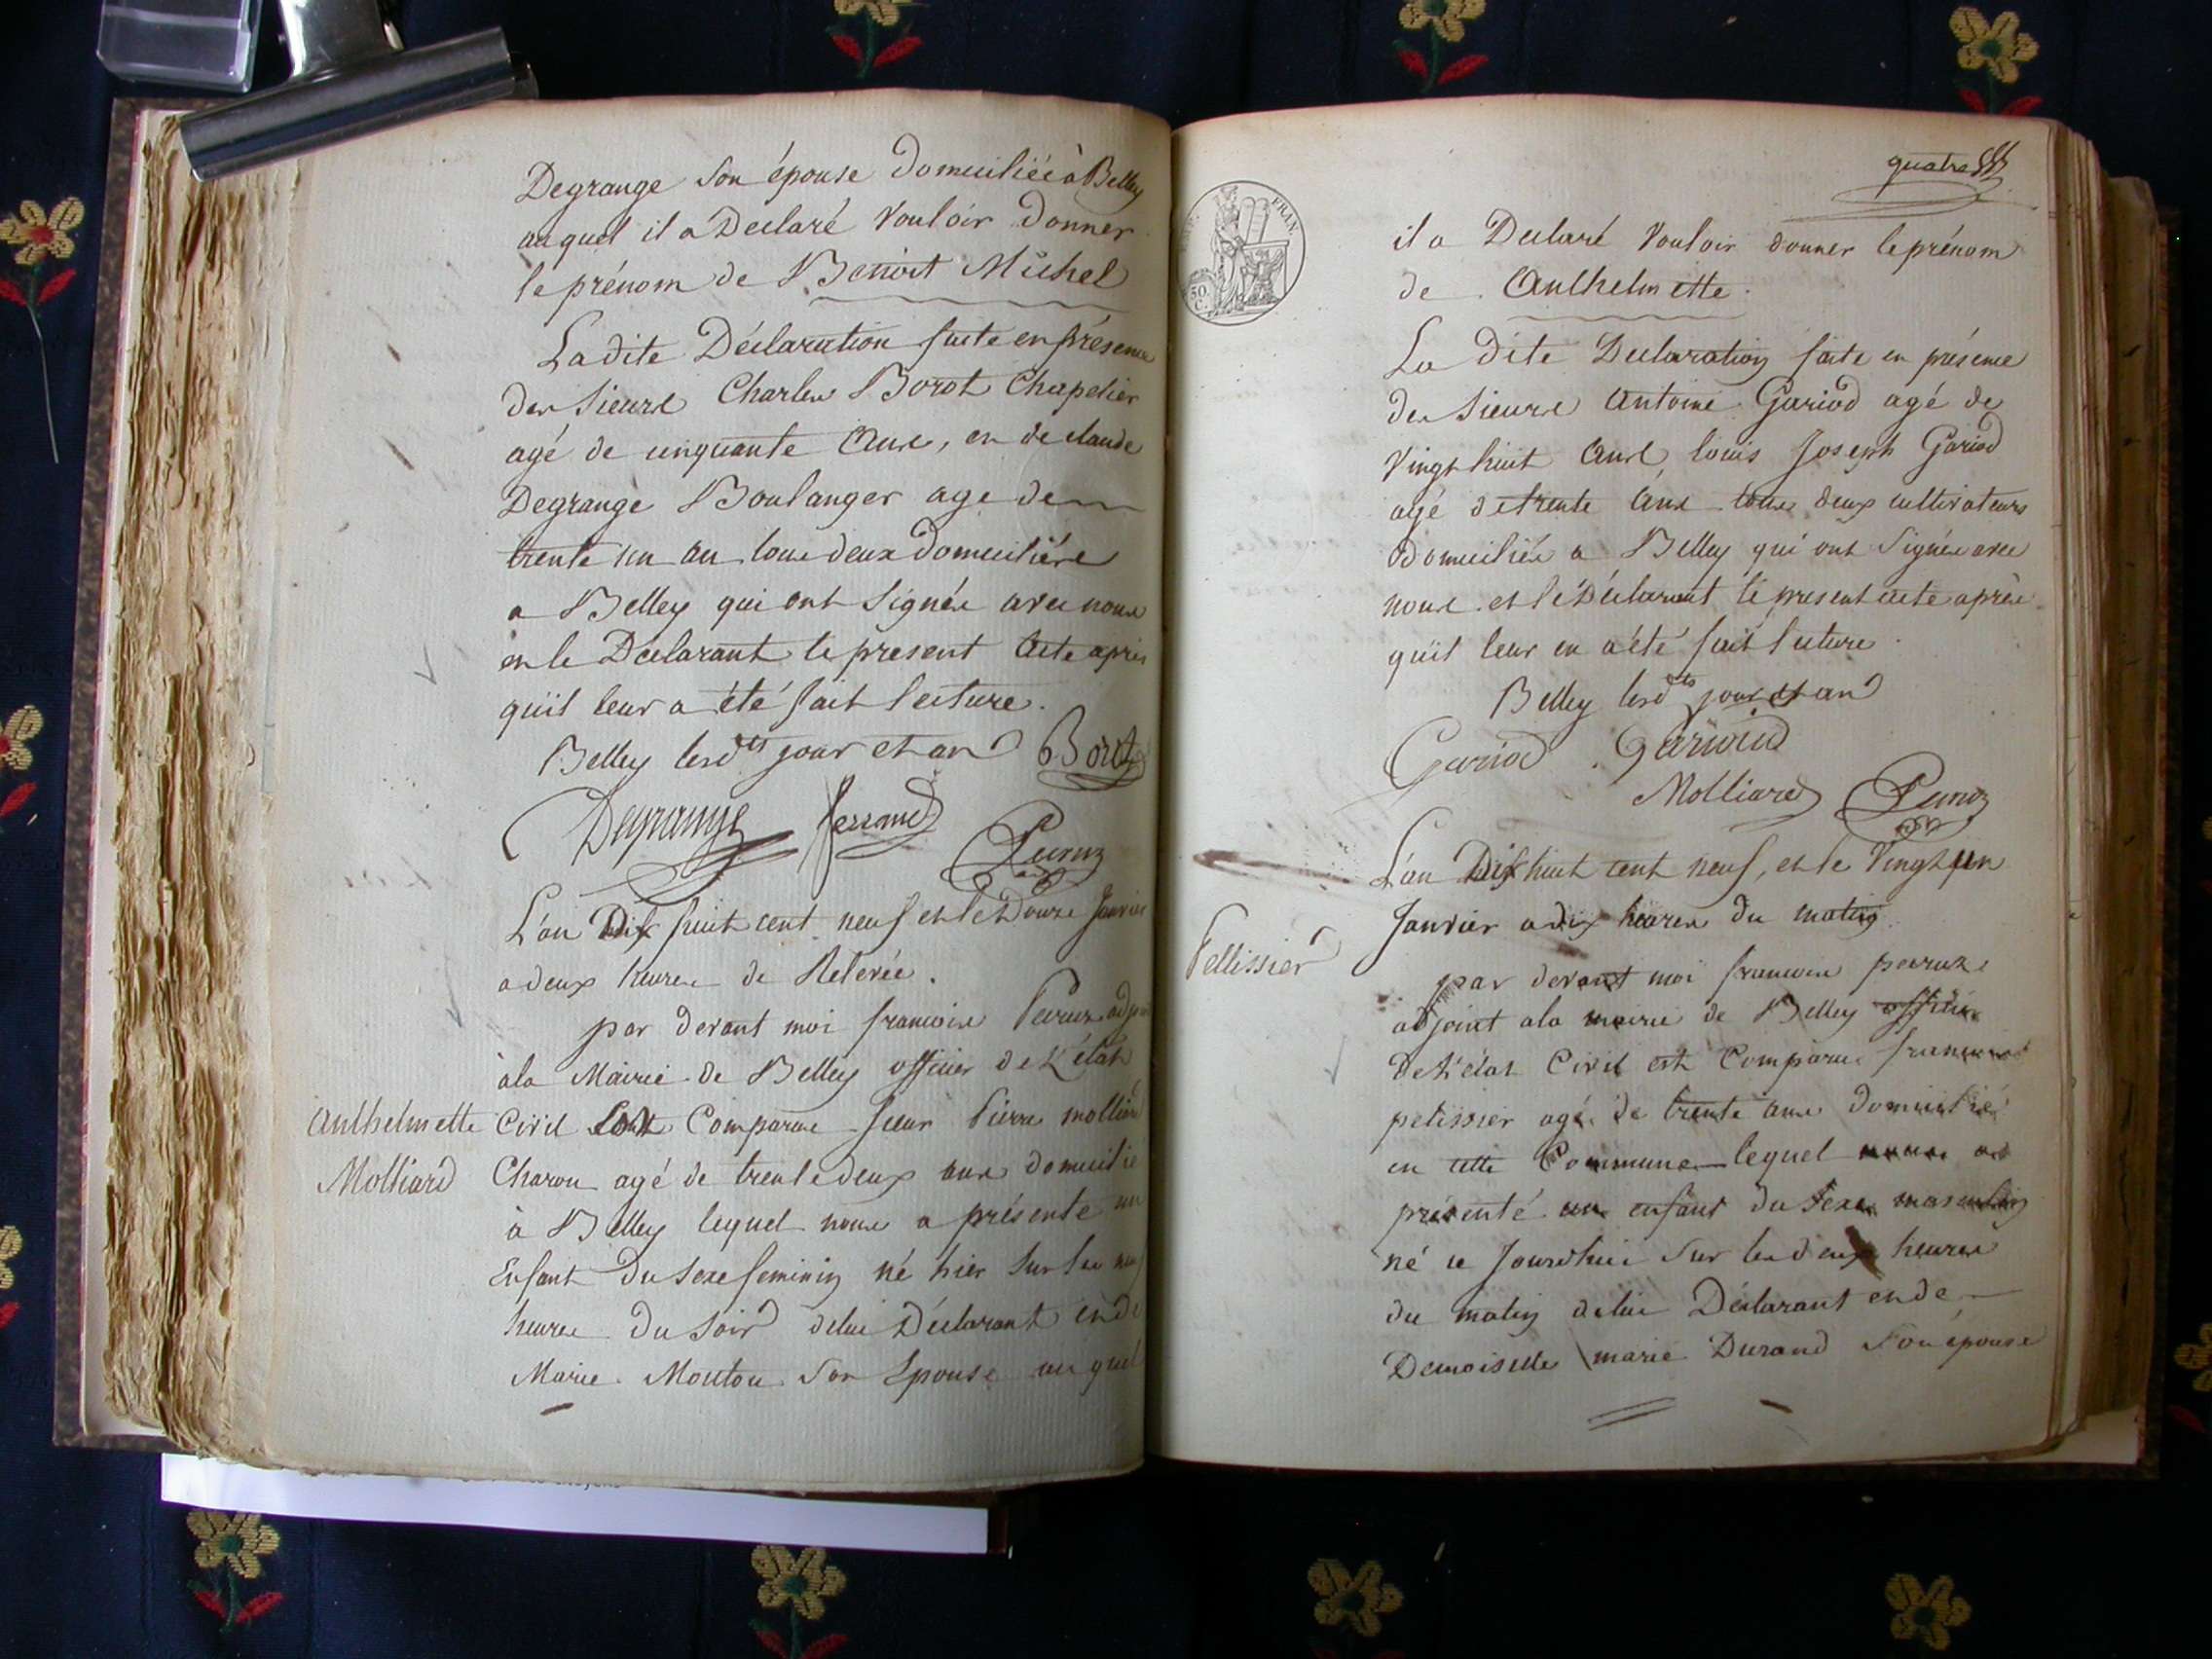 Degrange son épouse domiciliée à Belley
auquel il a Déclaré vouloir donner
le prénom de Benoit Michel
La dite Déclaration faite en présence
des Sieurs Charles Borot Chapelier
agé de cinquante ans, et de claude
Degrange Boulanger age de
trente un an tous deux domiciliés
a Belley qui ont Signés avec nous
et le Déclarant le present acte après
qu'il leur a été fait lecture.
Belley lesdts jour et an Borot
Degrange Ferrand Peruz
L'an Dix huit cent neuf et le Douze Janvier
a deux heures de Relevée.
par devant moi francois Peruz adjoint
à la Mairie de Belley officier de L'état
Anthelmette
Molliard
Civil est Comparu sieur Pierre molliard
Charon agé de trente deux ans domicilié
à Belley lequel nous a présenté un
Enfant du sexe feminin né hier sur les neuf
heures du soir de lui Déclarant et de
Marie Mouton son Epouse auquel
quatre
FRAN.
50
C.
il a Declaré vouloir donner le prénom
de Anthelmette.
La dite Declaration faite en présence
des Sieurs Antoine Gariod agé de
vingt huit ans, louis Joseph Gariod
agé de trente ans tous deux cultivateurs
domiciliés a Belley qui ont signés avec
nous et le Déclarant le present acte après
qu'il leur en a été fait lecture.
Belley lesdts jour et an
Gariod Gariod
Molliard Peruz
L'an Dix huit cent neuf, et le vingt un
Janvier a dix heures du matin
Pellissier
par devant moi francois peruz
adjoint a la mairie de Belley officier
de l'état Civil est Comparu francois
pelissier agé de trente ans domicilié
en cette Commune lequel nous a
présenté un enfant du sexe masculin
né ce Jourdhui sur les deux heures
du matin de lui Déclarant et de
Demoiselle marie Durand son épouse